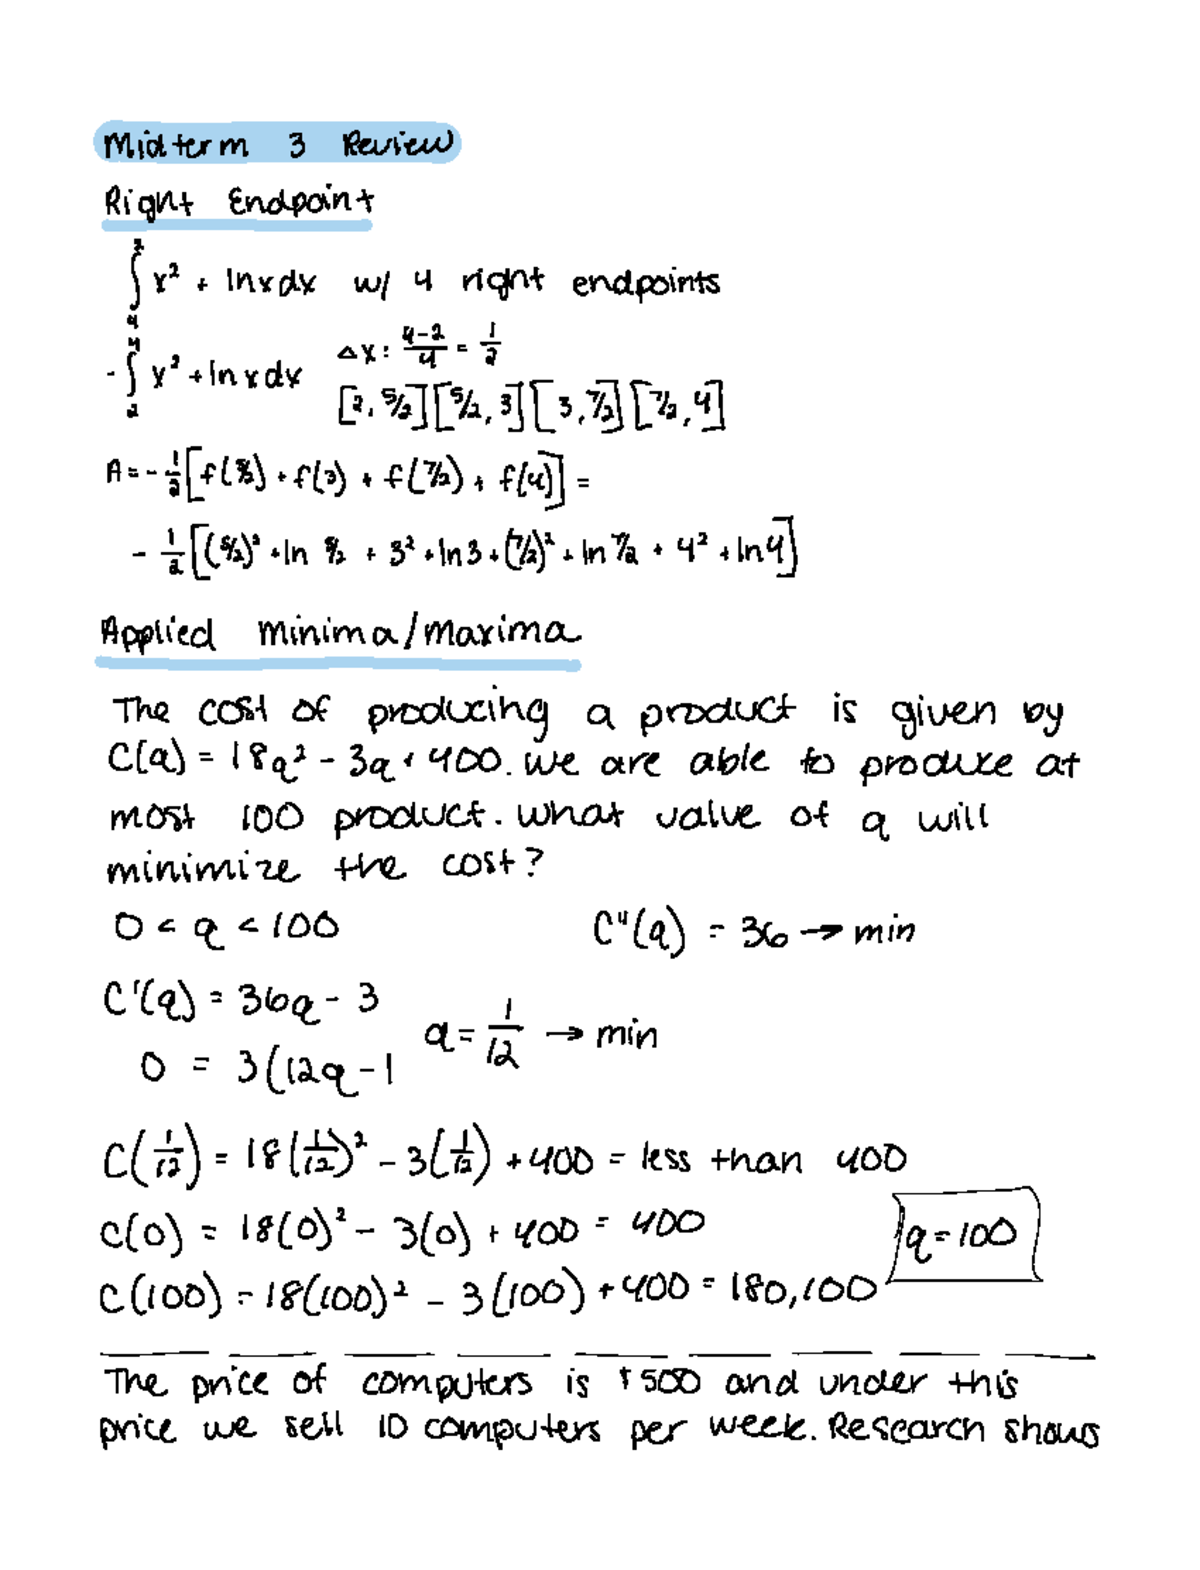 Midterm 3 Review
Right Endpoint
∫₄² x² + lnxdx w/ 4 right endpoints
-∫₂⁴ x² + lnxdx Δx: (4-2)/4 = 1/2
[2, 5/2][5/2, 3][3, 7/2][7/2, 4]
A = -1/2[f(5/2) + f(3) + f(7/2) + f(4)] =
- 1/2[(5/2)² + ln 5/2 + 3² + ln3 + (7/2)² + ln 7/2 + 4² + ln4]
Applied Minima/Maxima
The cost of producing a product is given by
C(q) = 18q² - 3q + 400. we are able to produce at
most 100 product. What value of q will
minimize the cost?
0 < q < 100 C"(q) = 36 → min
C'(q) = 36q - 3
q = 1/12 → min
0 = 3(12q - 1
C(1/12) = 18(1/12)² - 3(1/12) + 400 = less than 400
C(0) = 18(0)² - 3(0) + 400 = 400
q = 100
C(100) = 18(100)² - 3(100) + 400 = 180,100
The price of computers is $500 and under this
price we sell 10 computers per week. Research shows